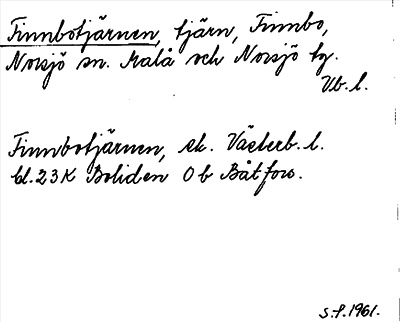 Finnbotjärnen, tjärn, Finnbo,
Norsjö sn. Malå och Norsjö tg.
Vb. l.
Finnbotjärnen, ek. Västerb. l.
bl. 23 K Boliden 0 b Båtfors.
S.P. 1961.